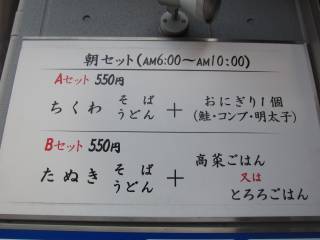 朝セット(AM6:00〜AM10:00)
Aセット 550円
ちくわ そば うどん + おにぎり1個
(鮭・コンブ・明太子)
Bセット 550円
たぬき そば うどん + 高菜ごはん
又は
とろろごはん